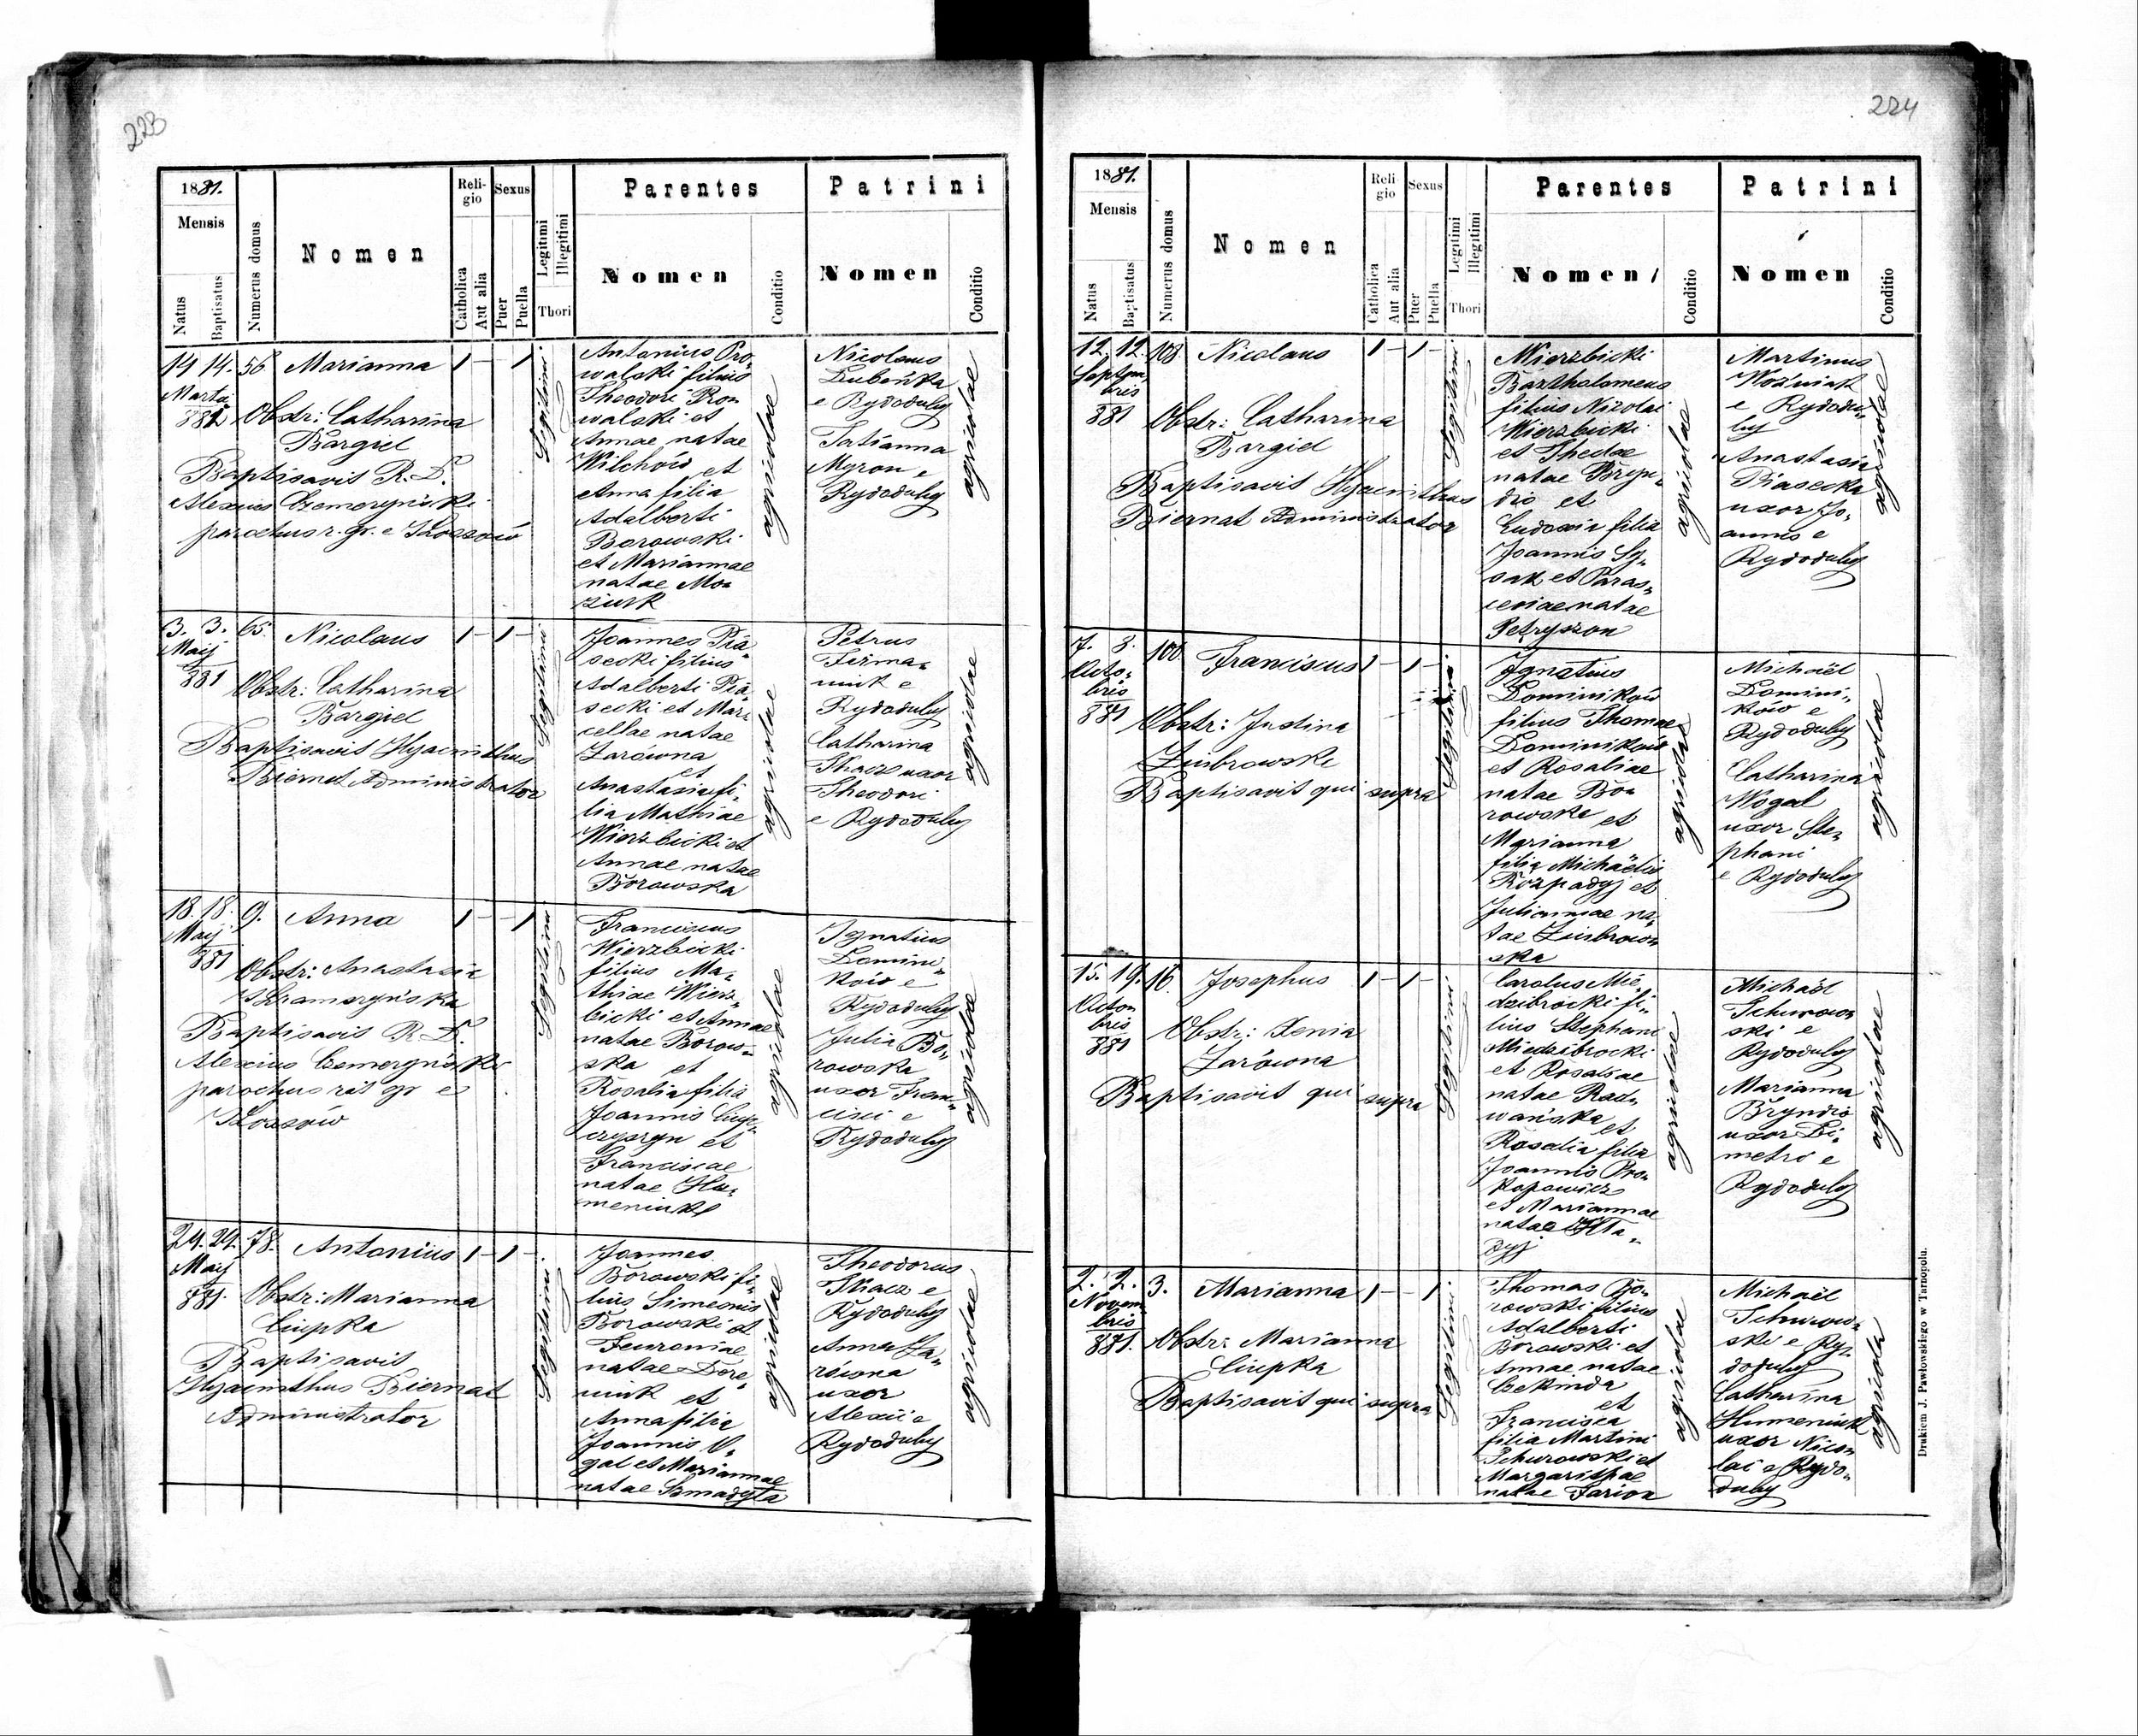 223
1881.
Mensis
Natus
Baptisatus
Numerus domus
Nomen
Religio
Catholica
Aut alia
Sexus
Puer
Puella
Legitimi
Illegitimi
Thori
Parentes
Nomen
Conditio
Patrini
Nomen
Conditio
14 14. 56 Marianna 1 – – 1
881
Obstr: Catharina
Bargiel
Baptisavit R. D.
Alexius Czemeryński
parochus r. gr. e
Legitimi
Antonius Pro-
walski filius
Theodori Pro-
walski et
Annae natae
Wilchów et
Anna filia
Adalberti
Borowski
et Mariannae
natae Mo-
agricolae
Nicolaus
e Rydoduby
Tatianna
Myron e
Rydoduby
agricolae
3. 3. 65. Nicolaus 1 – 1 –
Maij
881
Obstr: Catharina
Bargiel
Baptisavit Hyacinthus
Biernat Administrator
Legitimi
Joannes Pia-
secki filius
Adalberti Pia-
secki et Mar-
cellae natae
Zarówna
et
Anastasia fi-
lia Mathiae
Wierzbicki et
Annae natae
Borowska
agricolae
Petrus
Firma-
niuk e
Rydoduby
Catharina
Tkacz uxor
Theodori
e Rydoduby
agricolae
18. 18. 9. Anna 1 – – 1
Maij
881
Obstr: Anastasia
Baptisavit R. D.
Alexius Czemeryński
parochus rit gr e
Legitimi
Franciscus
Wierzbicki
filius Ma-
thiae Wierz-
bicki et Annae
natae Borow-
ska et
Rosalia filia
Joannis
et
Franciscae
natae Hu-
meniuk
agricolae
Ignatius
Domini-
ków e
Rydoduby
Julia Bo-
rowska
uxor Fran-
cisci e
Rydoduby
agricolae
24. 24. 78. Antonius 1 – 1 –
Maij
881.
Obstr: Marianna
Ciupka
Baptisavit
Hyacinthus Biernat
Administrator
Legitimi
Joannes
Borowski fi-
lius Simeonis
Borowski et
natae
et
Anna filia
Joannis W-
gal et Mariannae
natae
agricolae
Theodorus
Tkacz e
Rydoduby
Anna Za-
równa
uxor
Alexii e
Rydoduby
agricolae
224
1881.
Mensis
Natus
Baptisatus
Numerus domus
Nomen
Religio
Catholica
Aut alia
Sexus
Puer
Puella
Legitimi
Illegitimi
Thori
Parentes
Nomen
Conditio
Patrini
Nomen
Conditio
12. 12. 108. Nicolaus 1 – 1 –
Septem-
bris
881
Obstr: Catharina
Bargiel
Baptisavit Hyacinthus
Biernat Administrator
Legitimi
Wierzbicki
Bartholomeus
filius Nicolai
Wierzbicki
et Theclae
natae Bryn-
dio et
Eudoxia filia
Joannis Sy-
sak et Paras-
ceviae natae
Petryszon
agricolae
Martinus
Woźniak
e Rydodu-
by
Anastasia
Piasecka
uxor Jo-
annis e
Rydoduby
agricolae
7. 8. 100. Franciscus 1 – 1 –
Octo-
bris
881
Obstr: Justina
Zimbrowska
Baptisavit qui supra
Legitimi
Ignatius
Dominików
filius Thomae
Dominików
et Rosaliae
natae Bo-
rowska et
Marianna
filia Michaëlis
Rozpadyj et
Juliannae na-
tae Zimbrow-
ska
agricolae
Michaël
Domini-
ków e
Rydoduby
Catharina
Wogal
uxor Ste-
phani
e Rydoduby
agricolae
15. 19. 16. Josephus 1 – 1 –
Octo-
bris
881
Obstr: Xenia
Zarówna
Baptisavit qui supra
Legitimi
Carolus Mie-
dzibrocki fi-
lius Stephani
Miedzibrocki
et Rosaliae
natae Rad-
wańska et
Rosalia filia
Joannis Pro-
kopowicz
et Mariannae
natae
agricolae
Michaël
Schurow-
ski e
Rydoduby
Marianna
Bryndio
uxor Di-
metri e
Rydoduby
agricolae
2. 2. 3. Marianna 1 – – 1
Novem-
bris
881.
Obstr: Marianna
Ciupka
Baptisavit qui supra
Legitimi
Thomas Bo-
rowski filius
Adalberti
Borowski et
Annae natae
et
Francisca
filia Martini
Schurowski et
Margarithae
natae
agricolae
Michaël
Schurow-
ski e Ry-
doduby
Catharina
Humeniuk
uxor Nico-
lai e Rydo-
duby
agricola
Drukiem J. Pawłowskiego w Tarnopolu.